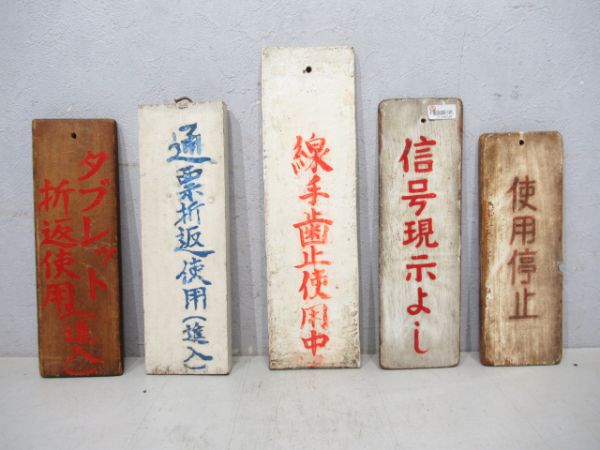 タブレット
折返使用(進入)
通票折返使用(進入)
線手歯止使用中
信号現示よし
使用停止